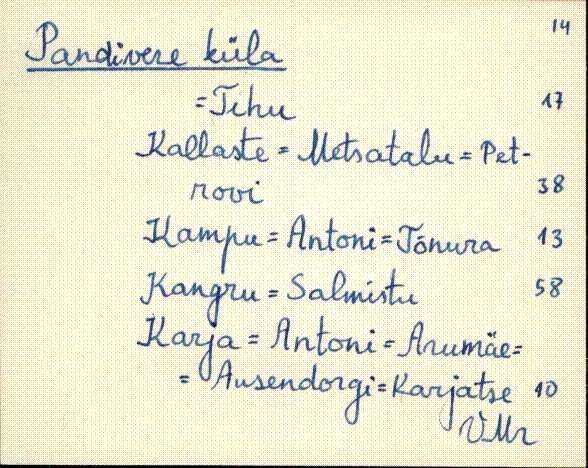 14
Pandivere küla
=Tihu 17
Kallaste = Metsatalu = Pet-
rovi 38
Kampu = Antoni = Tõnura 13
Kangru = Salmistu 58
Karja = Antoni = Arumäe =
= Ausendorgi = Karjatse 10
VMr